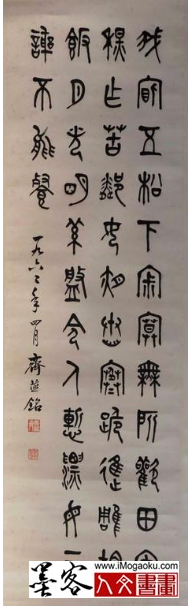 我宿五松下寂寥無所歡田家
秋作苦鄰女夜舂寒跪進雕胡
飯月光明素盤令人慚漂母三
謝不能餐
一九六二年四月 齊燕銘
www.iMogaoku.com
墨客
人文書畫